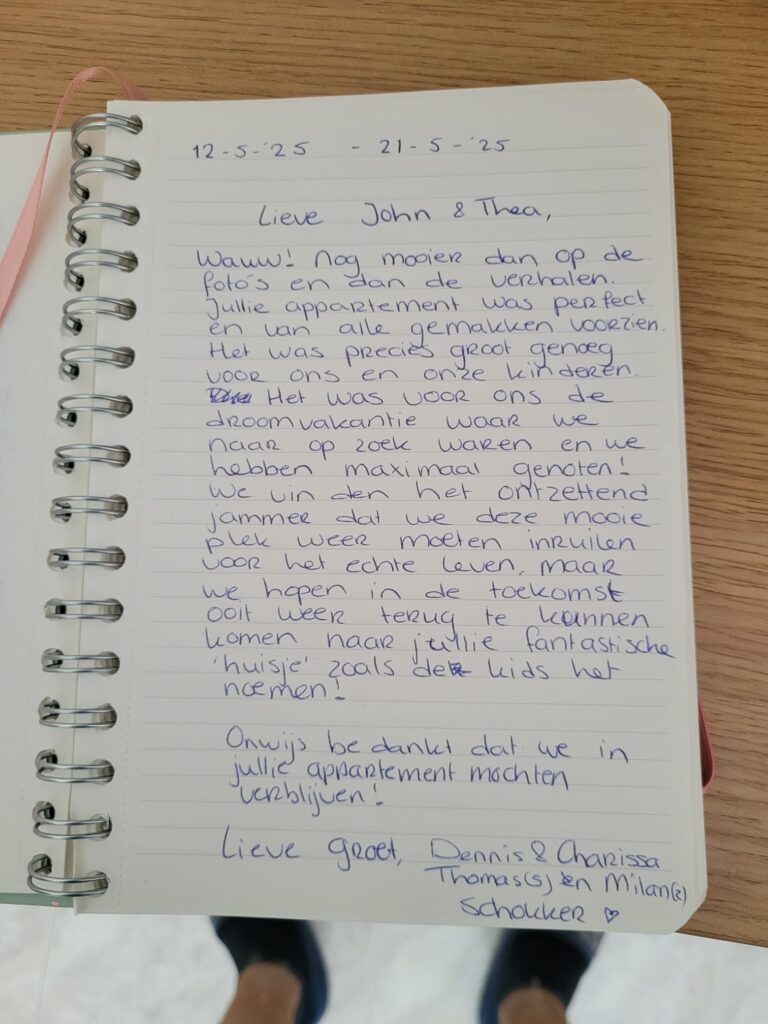 12-5-'25 - 21-5-'25
Lieve John & Thea,
Wauw! Nog mooier dan op de
foto's en dan de verhalen.
Jullie appartement was perfect
en van alle gemakken voorzien.
Het was precies groot genoeg
voor ons en onze kinderen.
Het was voor ons de
droomvakantie waar we
naar op zoek waren en we
hebben maximaal genoten!
We vinden het ontzettend
jammer dat we deze mooie
plek weer moeten inruilen
voor het echte leven, maar
we hopen in de toekomst
ooit weer terug te kunnen
komen naar jullie fantastische
'huisje' zoals de kids het
noemen!
Onwijs bedankt dat we in
jullie appartement mochten
verblijven!
Lieve groet, Dennis & Charissa
Thomas(5) en Milan(2)
Schokker ♡